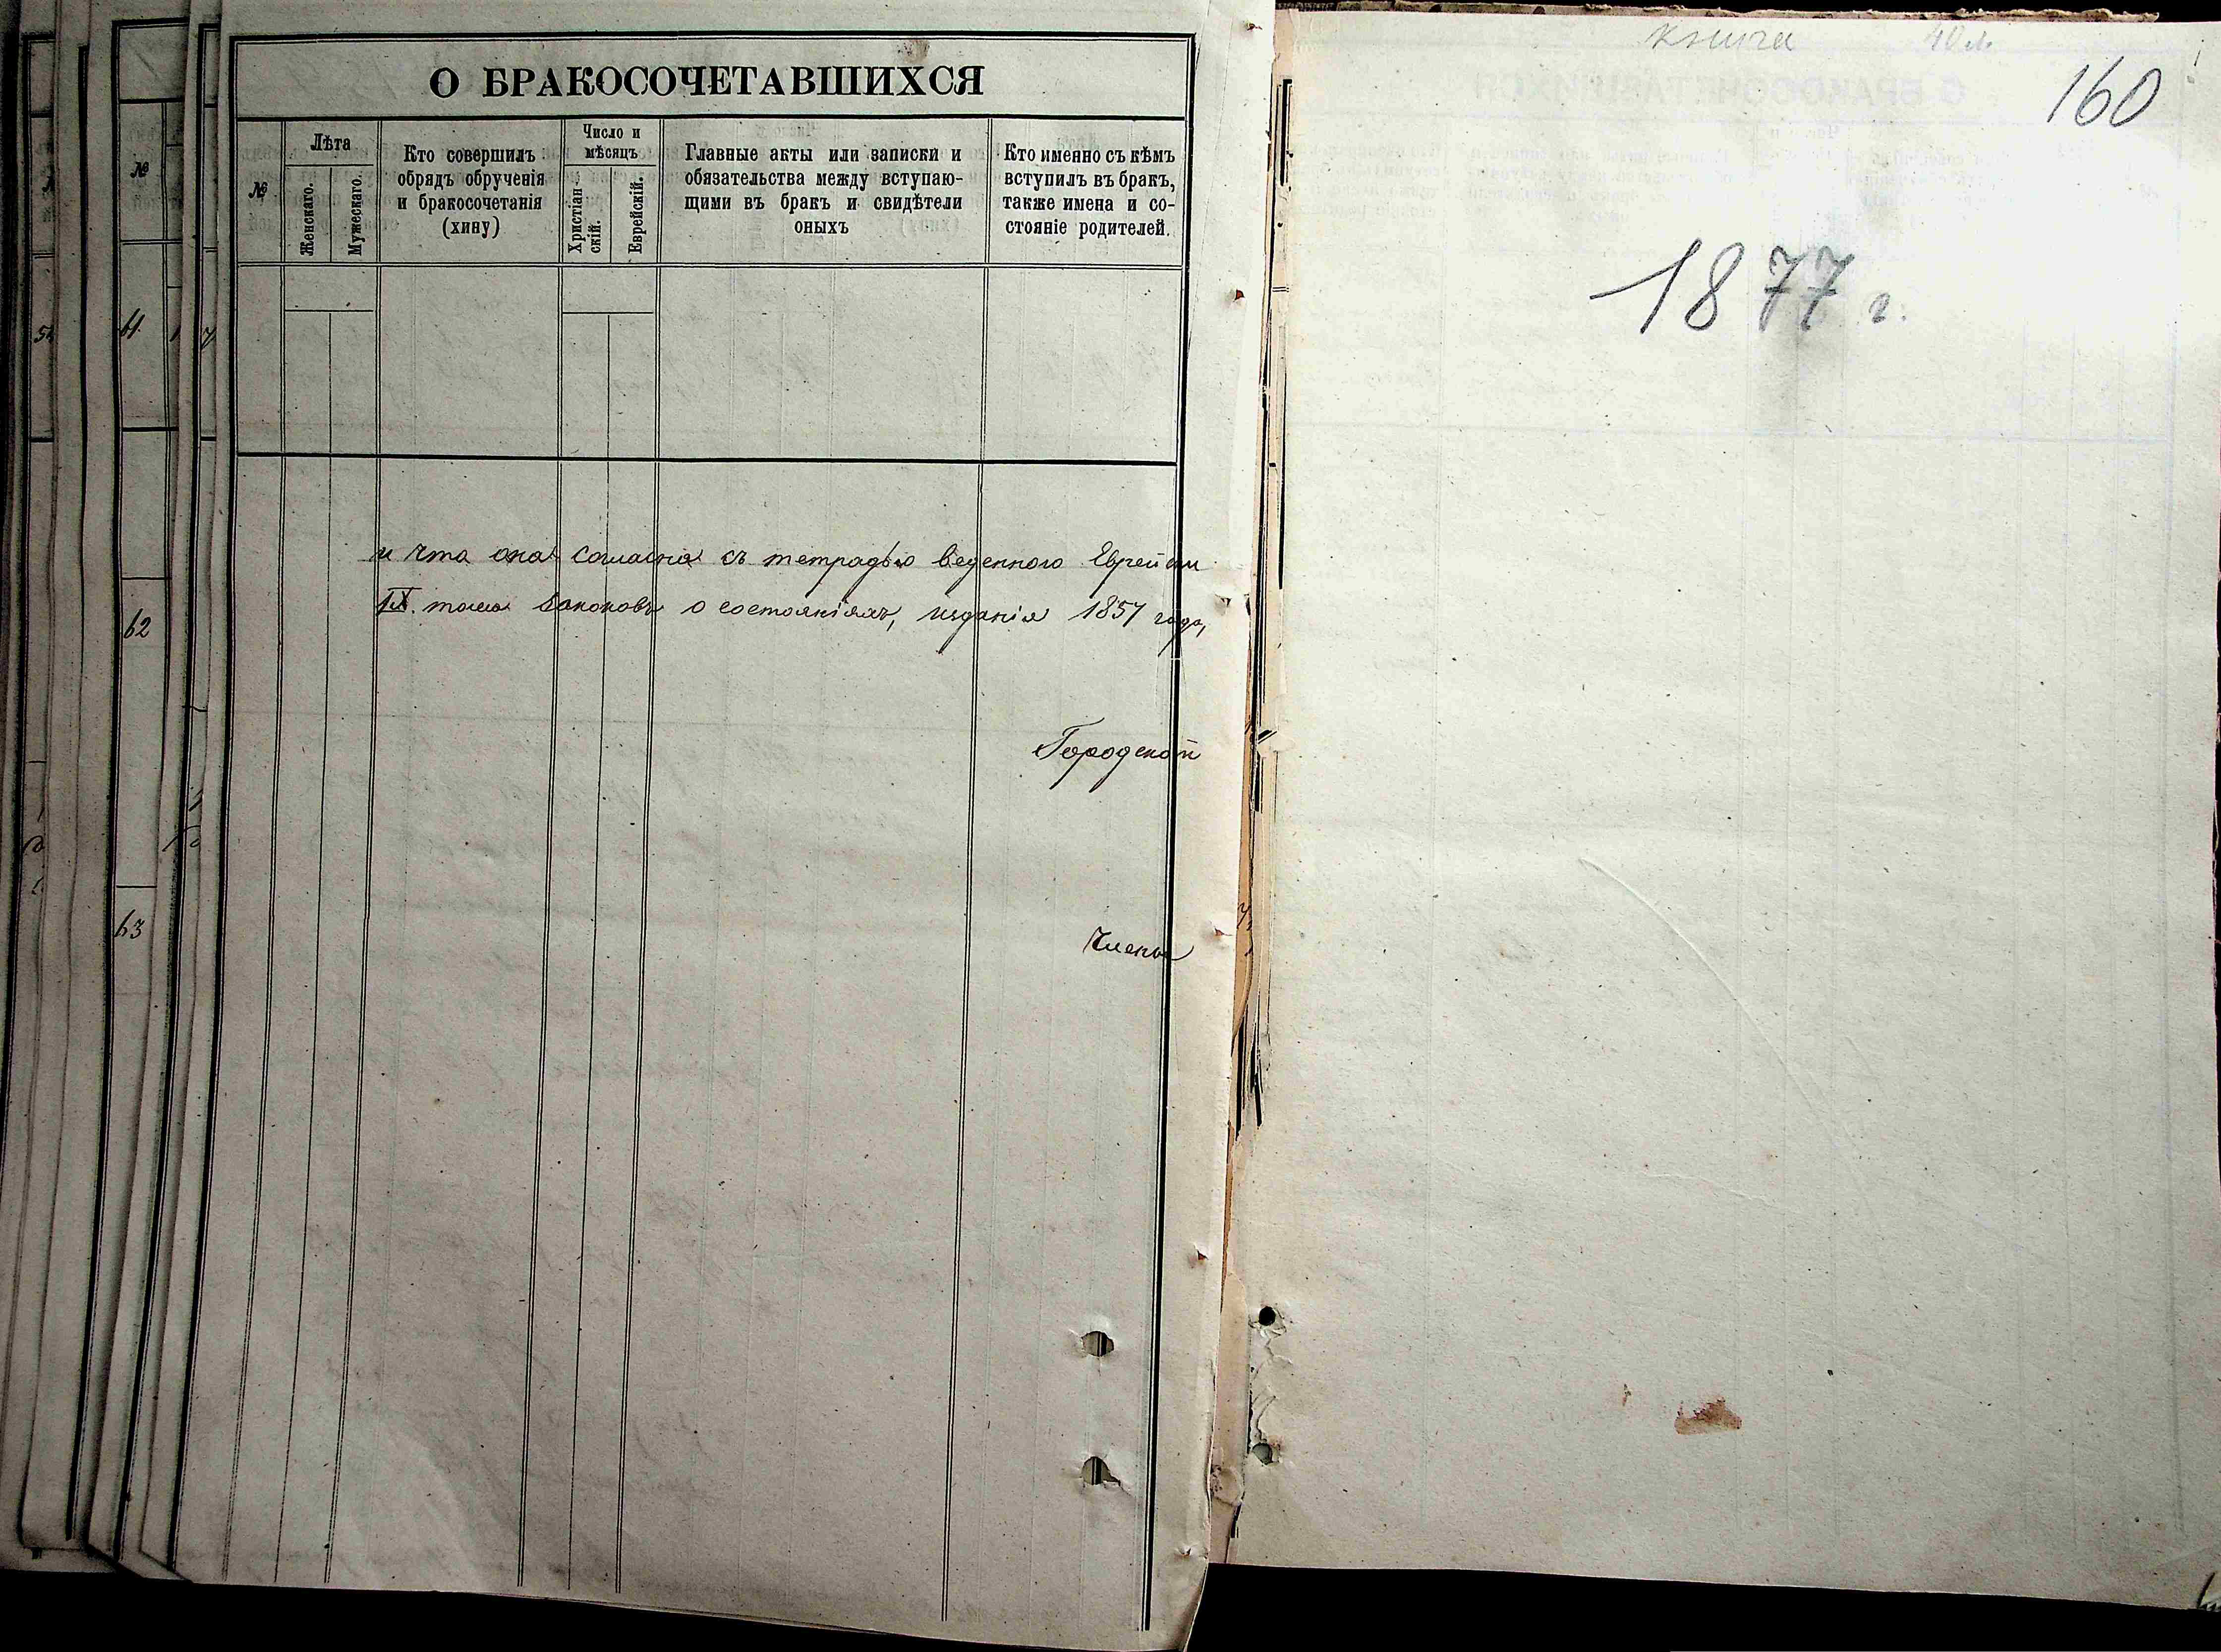 О БРАКОСОЧЕТАВШИХСЯ
№
Лѣта
Женскаго.
Мужескаго.
Кто совершилъ
обрядъ обрученія
и бракосочетанія
(хину)
Число и
мѣсяцъ
Христіан-
скій.
Еврейскій.
Главные акты или записки и
обязательства между вступаю-
щими въ бракъ и свидѣтели
оныхъ
Кто именно съ кѣмъ
вступилъ въ бракъ,
также имена и со-
стояніе родителей.
и что она согласна съ тетрадью веденного Еврейски
IX. тома законовъ о состояніяхъ, изданія 1857 года,
Городской
Члены
№
61
62
63
книга 40 л.
160
1877 г.